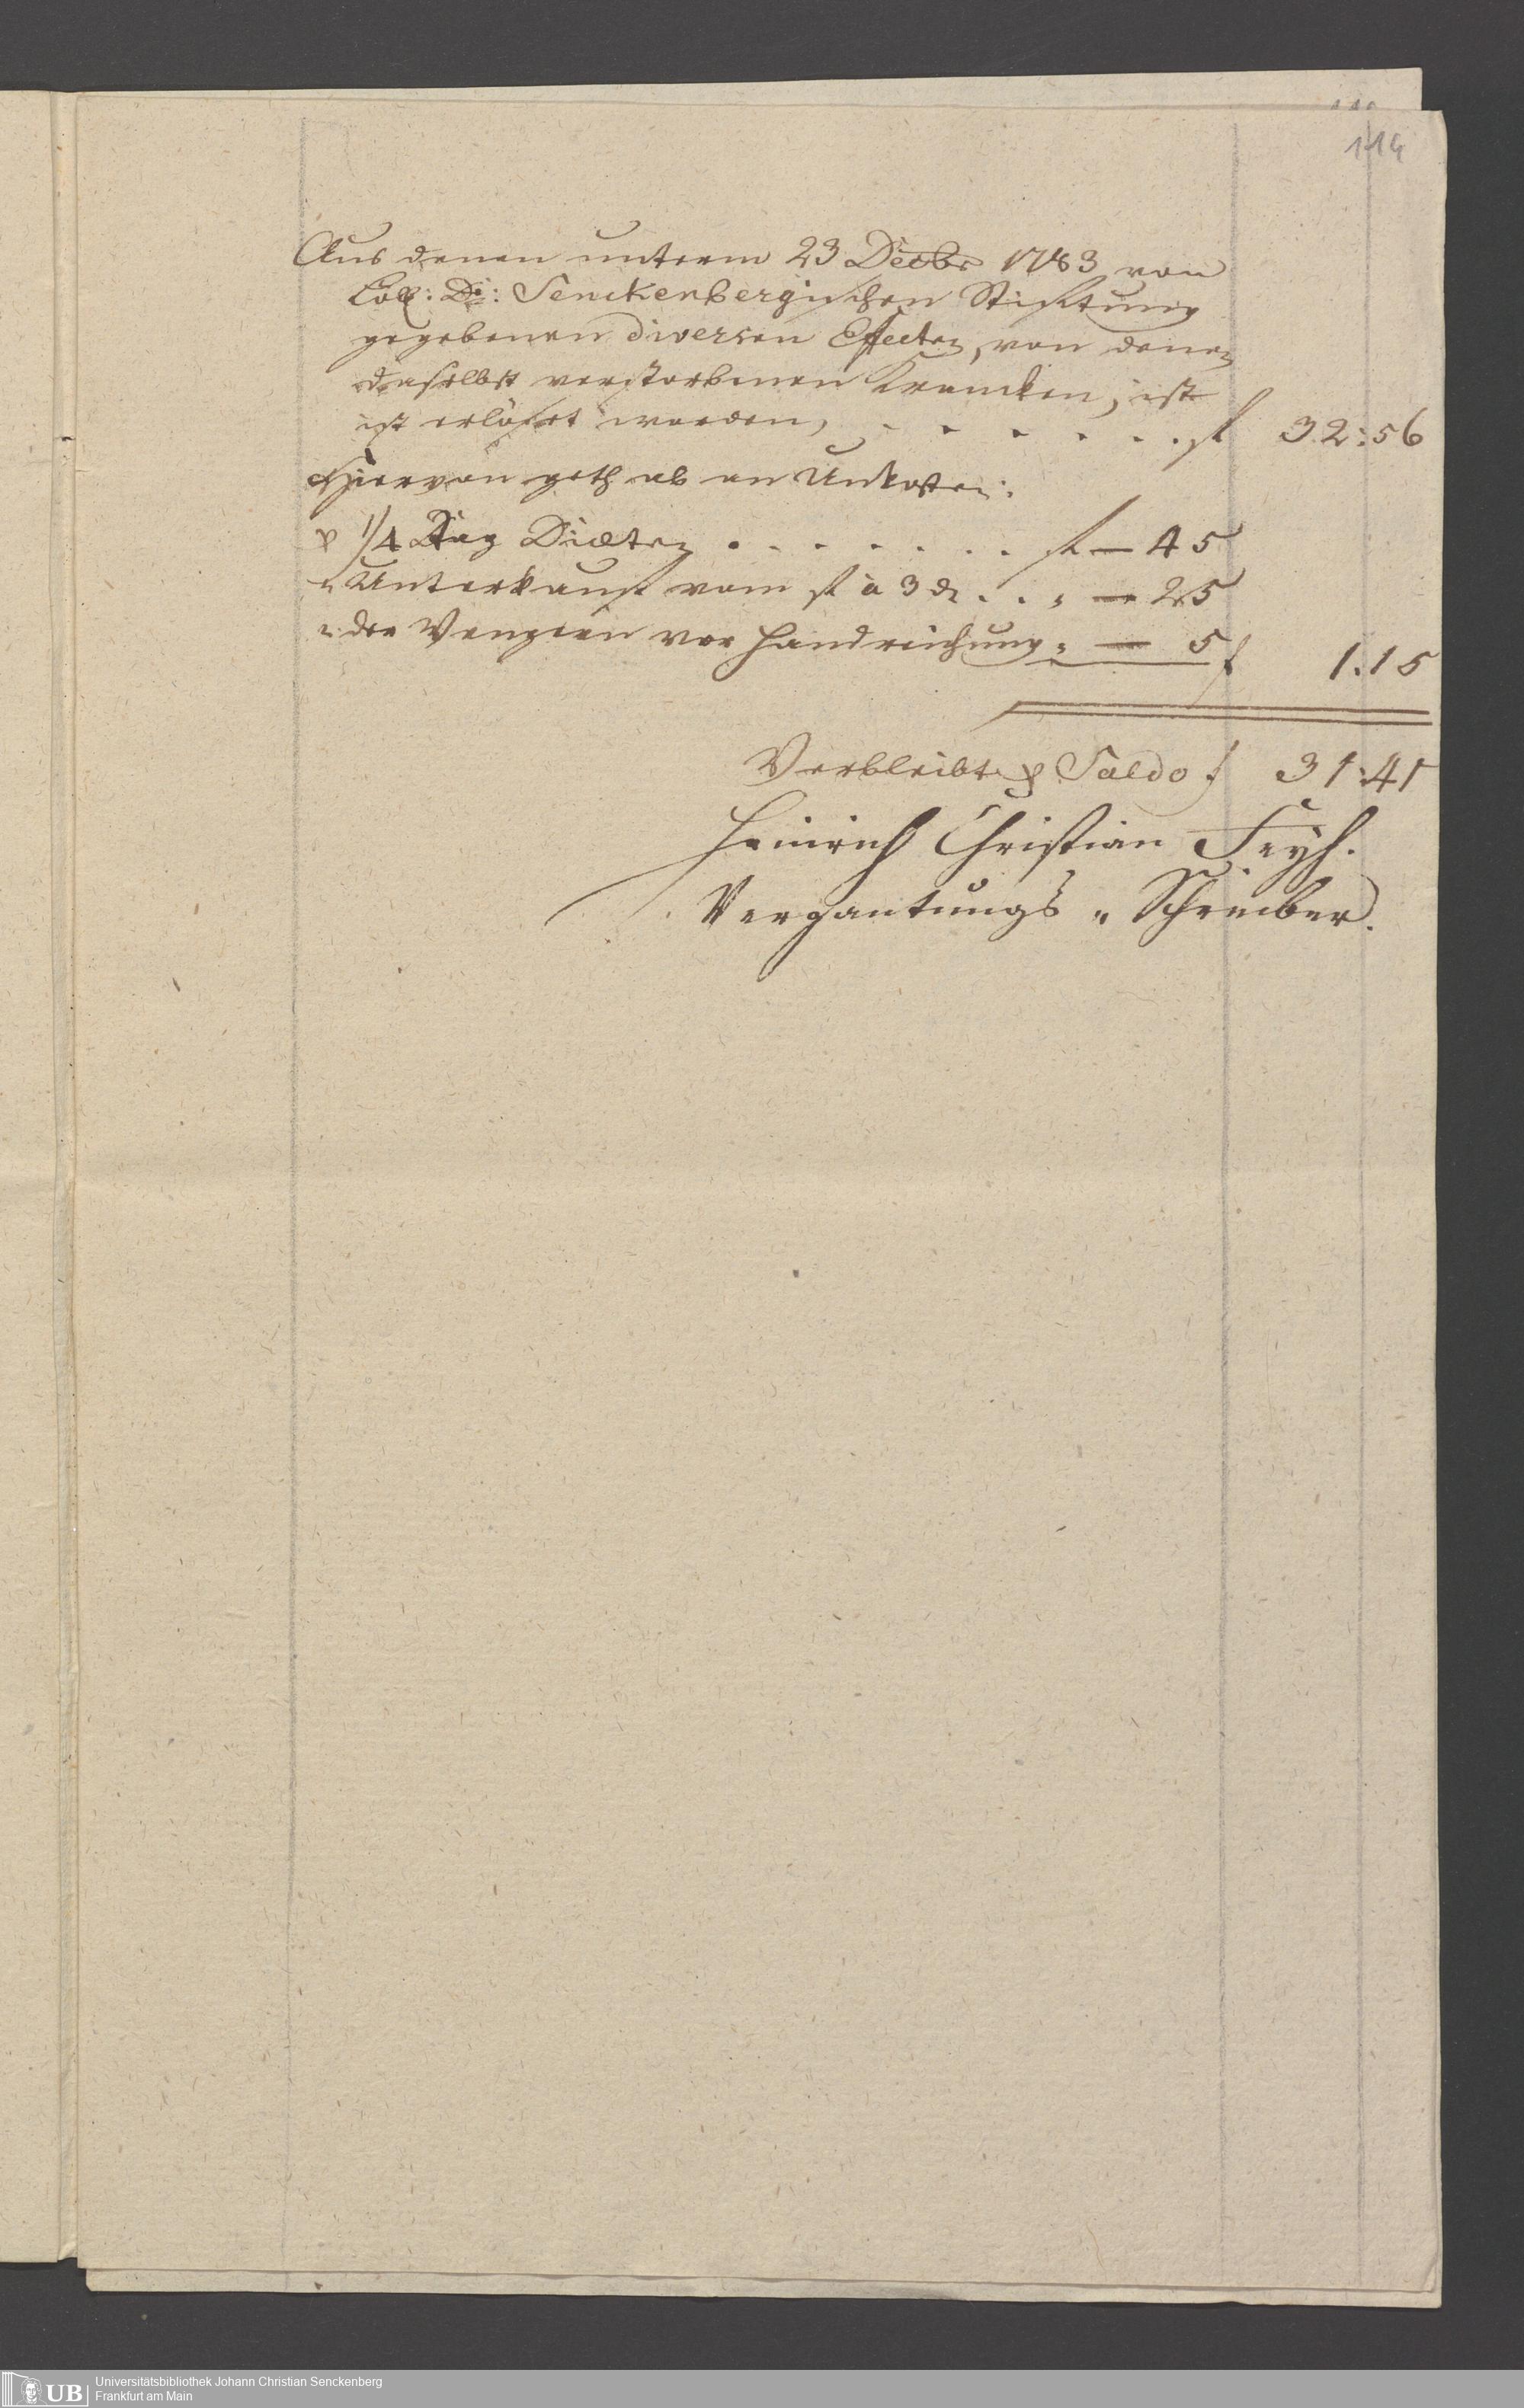 114
Aus denen unterm 23 Decbr 1783 von
Löbl: Dr: Senckenbergischen Stiftung
gegebenen diversen Effecten, von denen
daselbst verstorbenen Krancken, ist
ist erlößt worden, . . . . . . fl 32:56
Hiervon geth ab an Unkosten:
p 1/4 Tag Diæten . . . . . . . fl — 45
" Unterkauf vom fl à 3 d . . " — 25
" der Wengern vor Handreichung " — 5 f 1.15
Verbleibt p Saldo f 31:41
Heinrich Christian Feyh.
Vergantungs " Schreiber.
UB
Universitätsbibliothek Johann Christian Senckenberg
Frankfurt am Main